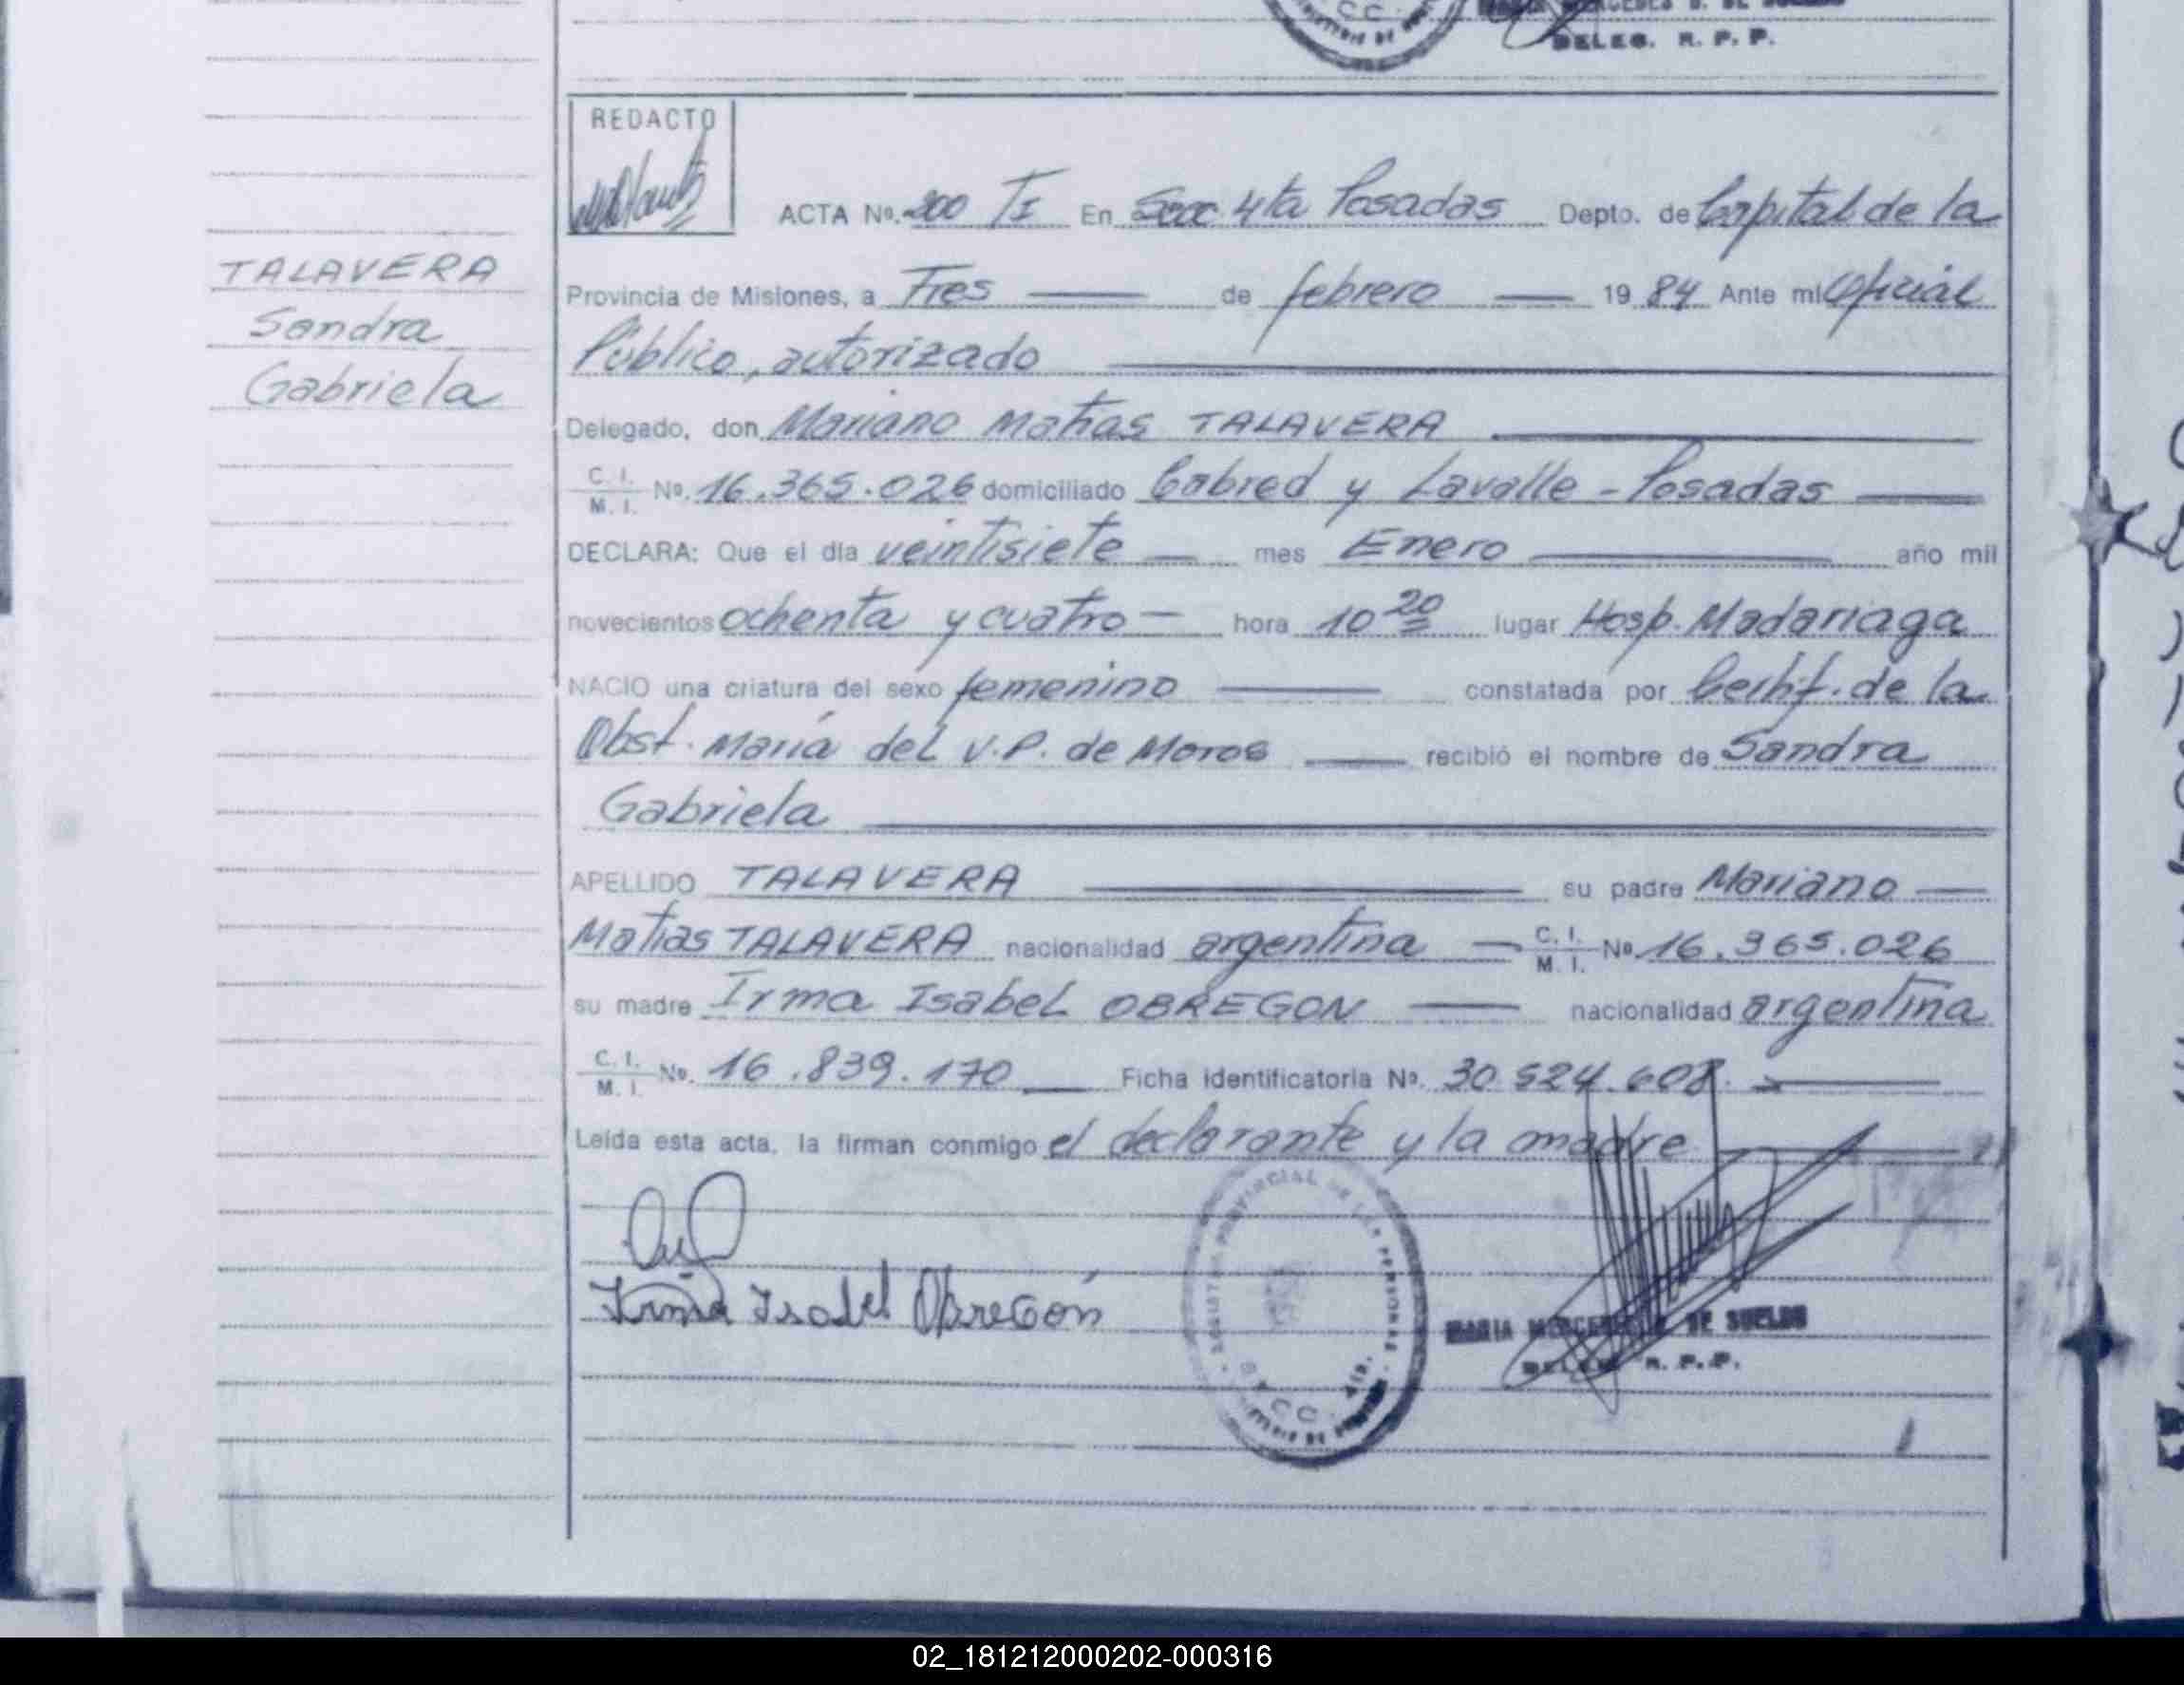 DELEG. R. P. P.
REDACTO
ACTA Nº. 200 TI En Secc 4ta Posadas Depto. de Capital de la
TALAVERA
Sandra
Gabriela
Provincia de Misiones, a Tres de febrero 19 84 Ante mi Oficial
Público, autorizado
Delegado, don Mariano Matias TALAVERA
C. I. / M. I. Nº. 16.365.026 domiciliado Cabred y Lavalle - Posadas
DECLARA: Que el día veintisiete mes Enero año mil
novecientos ochenta y cuatro hora 10 20 lugar Hosp. Madariaga
NACIO una criatura del sexo femenino constatada por Certif. de la
Obst. María del V.P. de Moros recibió el nombre de Sandra
Gabriela
APELLIDO TALAVERA su padre Mariano
Matias TALAVERA nacionalidad argentina C. I. / M. I. Nº 16.365.026
su madre Irma Isabel OBREGON nacionalidad argentina
C. I. / M. I. Nº. 16.839.170 Ficha identificatoria Nº. 30 524.608.
Leída esta acta, la firman conmigo el declarante y la madre
Irma Isabel Obregón
MARIA DE SUELDO
DELEG. R. P. P.
02_181212000202-000316